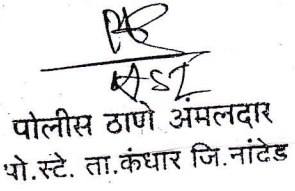 ASI
पोलीस ठाणे अंमलदार
पो.स्टे. ता.कंधार जि.नांदेड